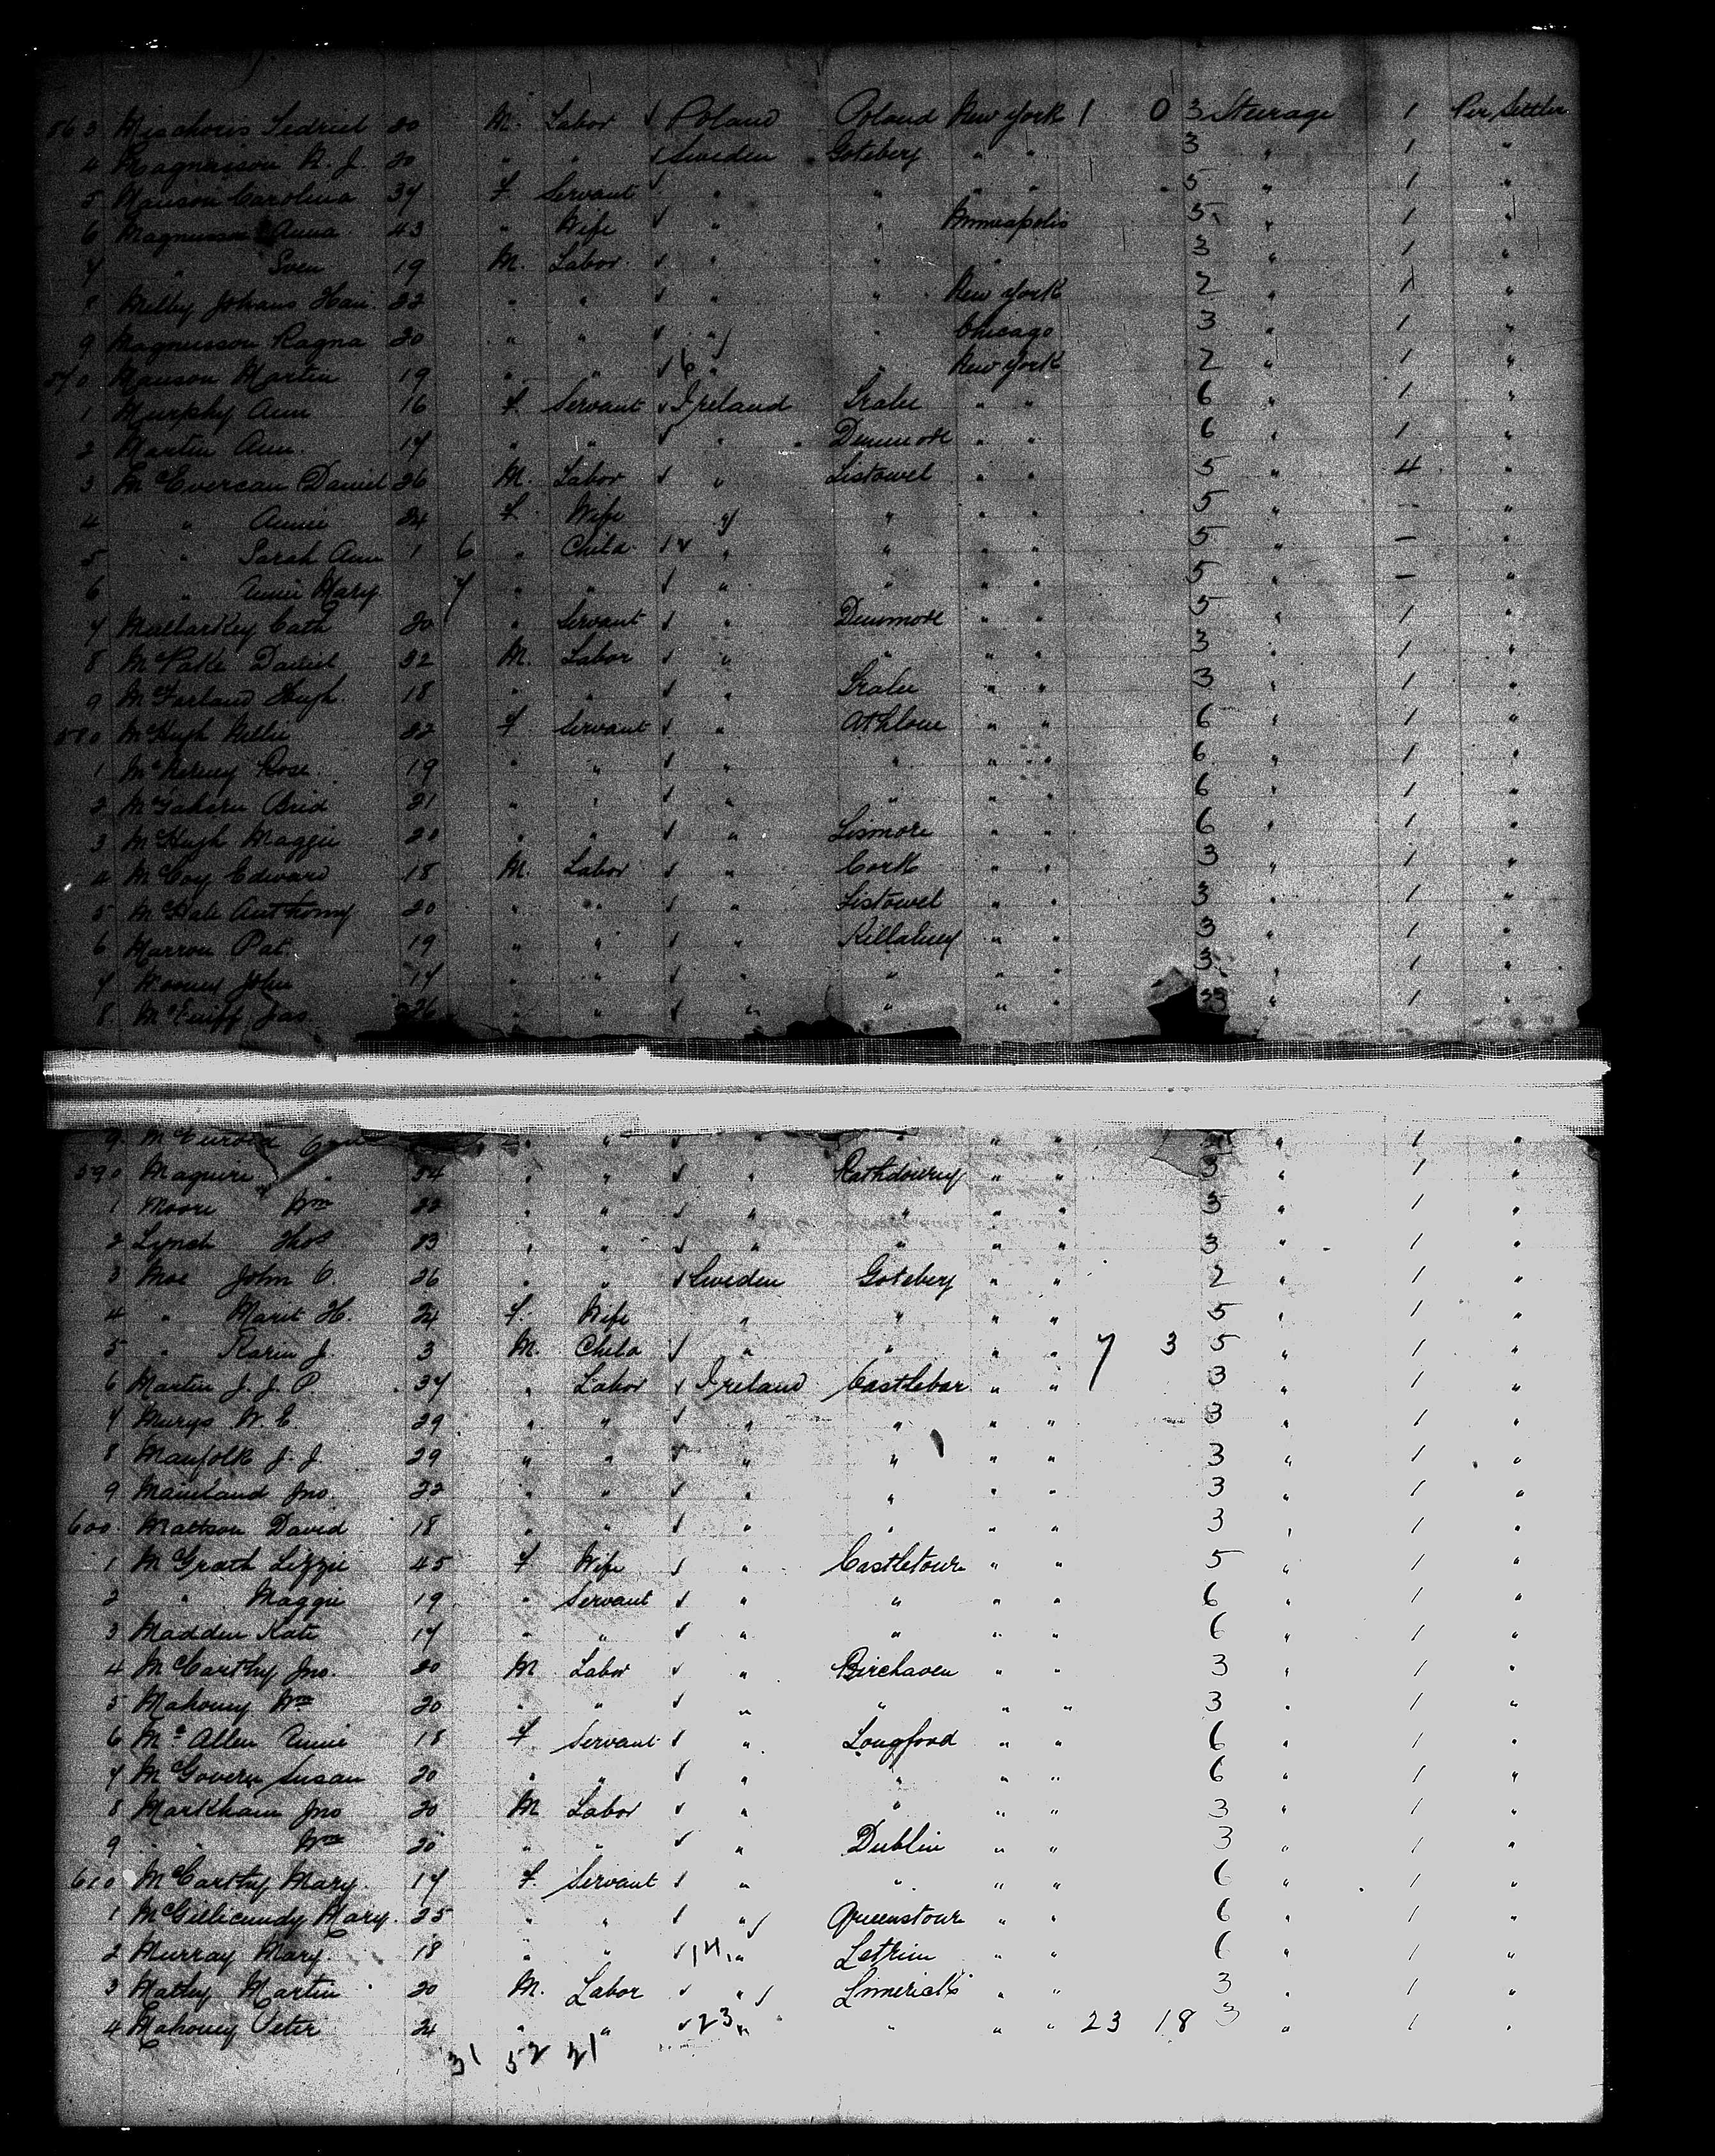 563 Sedriel 20 M. Labor ✓ Poland Poland New York 1 0 3 Steerage 1 Per Settler
4 Magnusson N. J. 20 " " ✓ Sweden Goteberg " " 3 " 1 "
5 Manson Carolina 37 F Servant ✓ " " " " 5 " 1 "
6 Magnusson Anna 43 " Wife ✓ " " Minneapolis 5 " 1 "
7 " Sven 19 M. Labor ✓ " " " 3 " 1 "
8 Melby Johans Han. 22 " " ✓ " " New York 2 " 1 "
9 Magnusson Ragna 20 " " ✓ " " Chicago 3 " 1 "
570 Manson Martin 19 " " ✓ 6 " " New York 2 " 1 "
1 Murphy Ann 16 F. Servant ✓ Ireland Tralee " " 6 " 1 "
2 Martin Ann 17 " " ✓ " Dunmore " " 6 " 1 "
3 Daniel 26 M. Labor ✓ " Listowel " " 5 " 4 "
4 " Annie 24 F. Wife " " " " 5 " — "
5 " Sarah Ann 1 6 " Child ✓ " " " " 5 " — "
6 " Annie Mary 7 " " ✓ " " " " 5 " — "
7 Mullarkey Cath 20 " Servant ✓ " Dunmore " " 5 " 1 "
8 Daniel 22 M. Labor ✓ " " " " 3 " 1 "
9 McFarland Hugh 18 " " ✓ " Tralee " " 3 " 1 "
580 McHugh Nellie 22 F Servant ✓ " Athlone " " 6 " 1 "
1 Rose 19 " " ✓ " " " " 6 " 1 "
2 McGahern Brid 21 " " ✓ " " " " 6 " 1 "
3 McHugh Maggie 20 " " ✓ " Lismore " " 6 " 1 "
4 McCoy Edward 18 M. Labor ✓ " Cork " " 3 " 1 "
5 McHale Anthony 20 " " ✓ " Listowel " " 3 " 1 "
6 Marron Pat. 19 " " ✓ " Killalney " " 3 " 1 "
7 John 17 " " ✓ " " " " 3 " 1 "
8 Jas 26 " " ✓ " " " " 3 " 1 "
9 " " ✓ " " " " 3 " 1 "
590 Maguire " 34 " " ✓ " Rathdowney " " 3 " 1 "
1 Moore Wm 22 " " ✓ " " " " 3 " 1 "
2 Lynch Thos 23 " " ✓ " " " " 3 " 1 "
3 Moe John O. 26 " " ✓ Sweden Goteberg " " 2 " 1 "
4 " Marit H. 24 F. Wife " " " " 5 " 1 "
5 " Karin J. 3 M. Child ✓ " " " " 7 3 5 " 1 "
6 Martin J. J. P. 37 " Labor ✓ Ireland Castlebar " " 3 " 1 "
7 W. E. 29 " " ✓ " " " " 3 " 1 "
8 Manfolk J. J. 29 " " ✓ " " " " 3 " 1 "
9 Jno. 22 " " ✓ " " " " 3 " 1 "
600 Mattson David 18 " " ✓ " " " " 3 " 1 "
1 McGrath Lizzie 45 F Wife ✓ " Castletown " " 5 " 1 "
2 " Maggie 19 " Servant ✓ " " " " 6 " 1 "
3 Madden Kate 17 " " ✓ " " " " 6 " 1 "
4 McCarthy Jno. 20 M Labor ✓ " Birehaven " " 3 " 1 "
5 Mahoney Wm 20 " " ✓ " " " " 3 " 1 "
6 Mc Allen Annie 18 F Servant ✓ " Longford " " 6 " 1 "
7 McGovern Susan 20 " " ✓ " " " " 6 " 1 "
8 Markham Jno 20 M Labor ✓ " " " " 3 " 1 "
9 " Wm 25 " " ✓ " Dublin " " 3 " 1 "
610 McCarthy Mary 17 F. Servant ✓ " " " " 6 " 1 "
1 McGillicundy Mary. 25 " " ✓ " Queenstown " " 6 " 1 "
2 Murray Mary. 18 " " ✓ 14 " Letrim " " 6 " 1 "
3 Martin 20 M. Labor ✓ " Limerick " " 3 " 1 "
4 Mahoney Peter 24 " " ✓ 23 " " " " 23 18 3 " 1 "
31 52 21